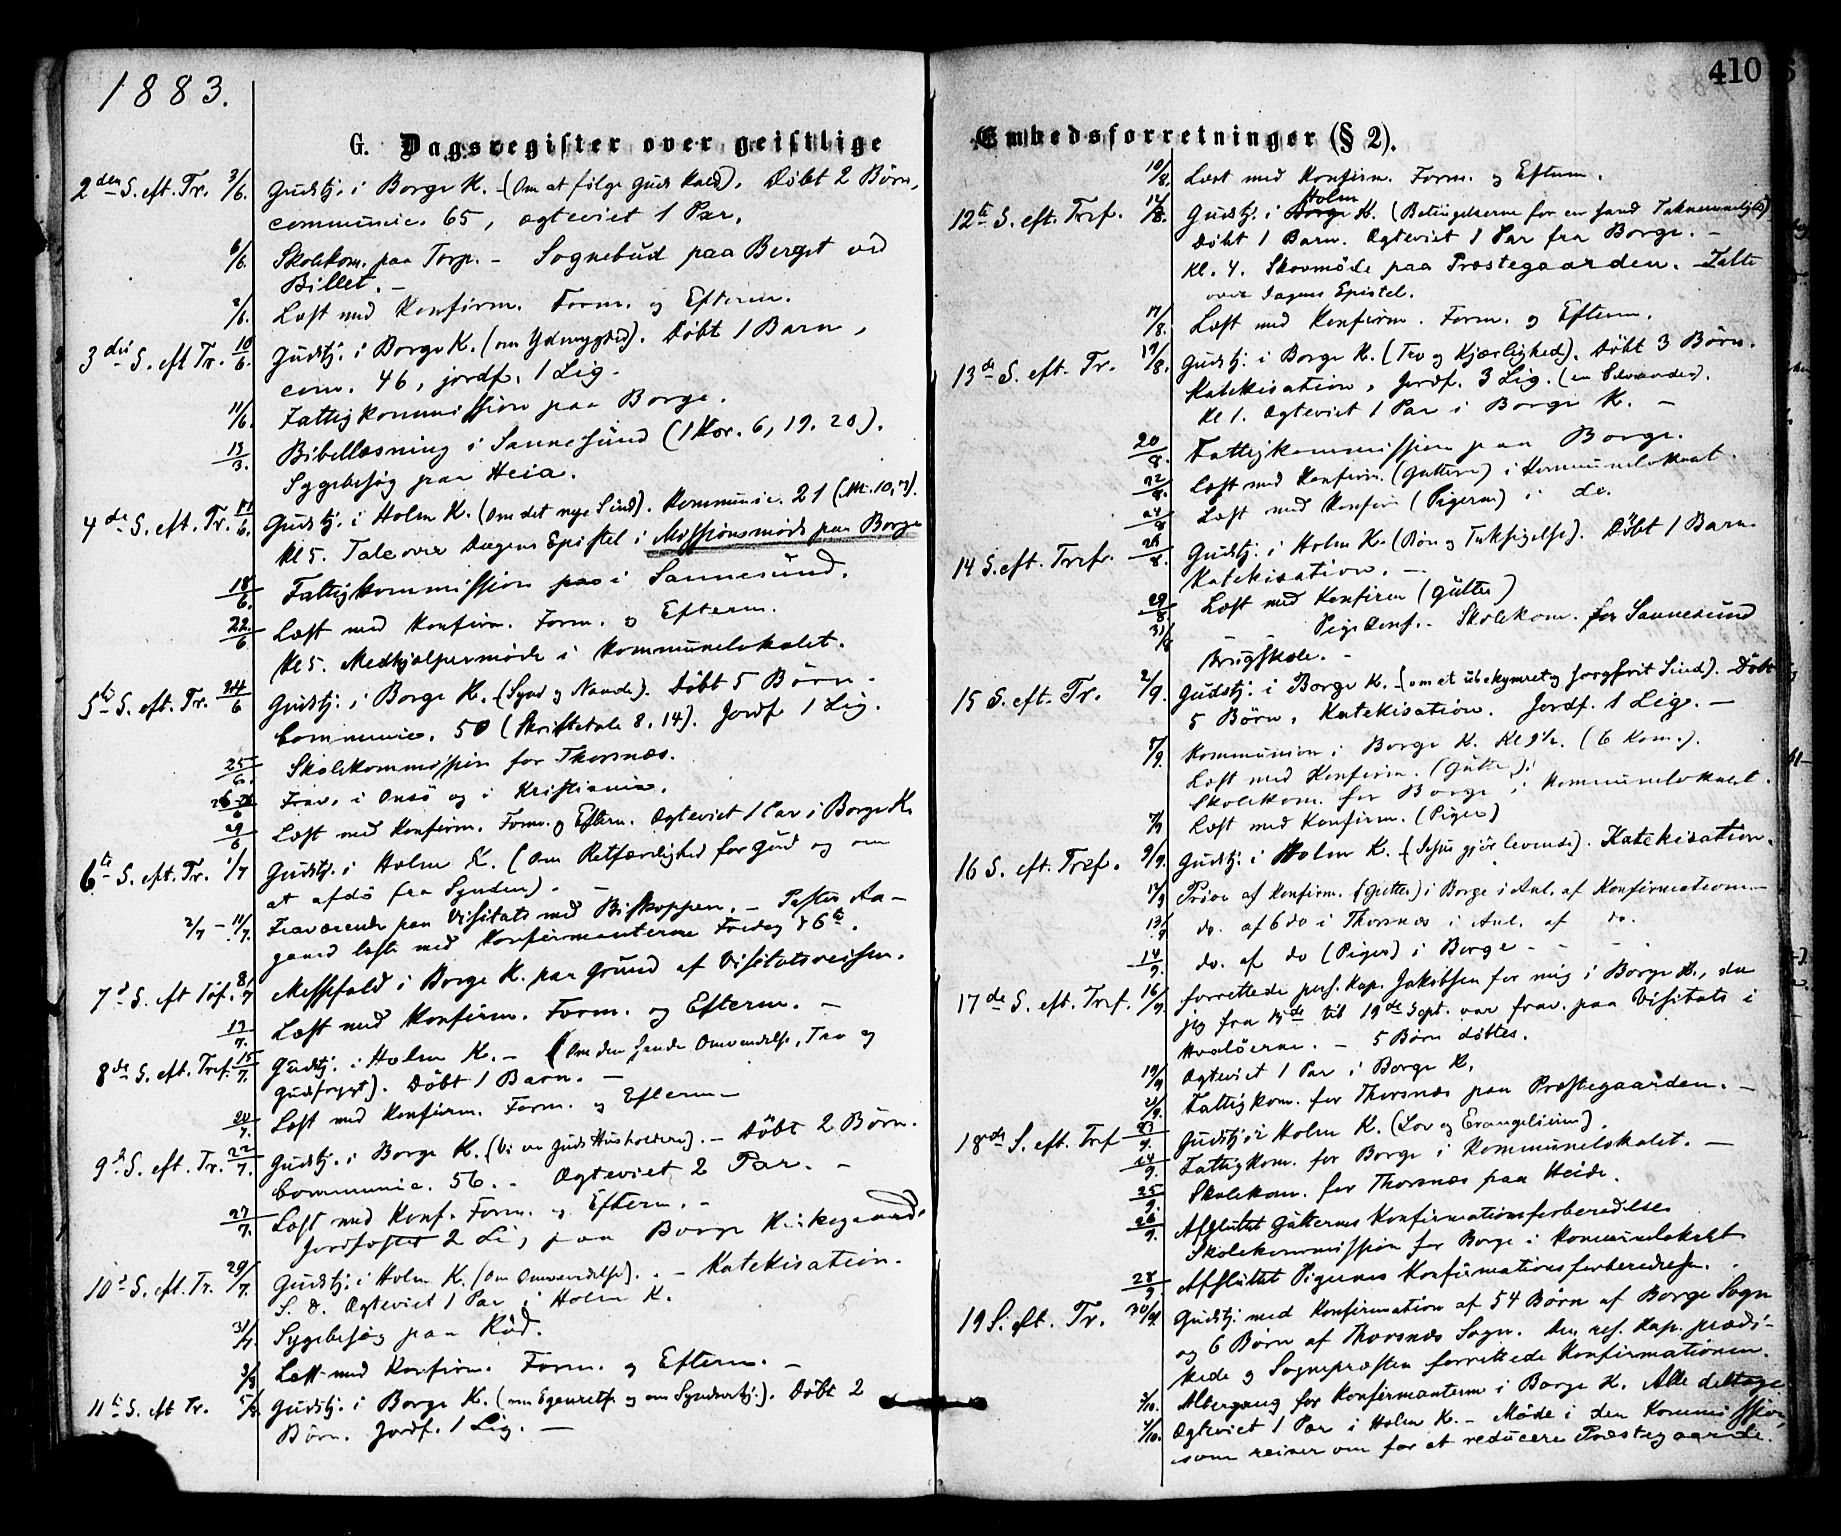 1883.
410
G. Dagsregister over geistlige
Embedsforretninger (§ 2).
2den S. eft. Tr. 3/6. Gudstj. i Borge K. – (Om at følge Guds Kald). Døbt 2 Børn,
communic. 65, ægteviet 1 Par.
6/6. Skolekom. paa Torp. – Sognebud paa Berget ved
Billet. –
/6. Læst med Konfirm. Form. og Efterm.
3die S. eft Tr. 10/6. Gudstj. i Borge K. (om Ydmyghed). Døbt 1 Barn,
com. 46, jordf. 1 Lig.
11/6. Fattigkommission paa Borge.
13/3. Bibellæsning i Sannesund (1 Kor. 6, 19. 20).
Sygebesøg paa Heia.
4de S. eft. Tr. 17/6. Gudstj. i Holm K. (Om det nye Sind). Kommunic. 21
Kl 5. Tale over Dagens Epistel i Missionsmøde paa Borge
18/6. Fattigkommission paa i Sannesund.
22/6 Læst med Konfirm. Form. og Efterm.
Kl 5. Medhjælpermøde i Kommunelokalet.
5te S. eft. Tr. 24/6 Gudstj. i Borge K. (Synd og Naade). Døbt 5 Børn.
Communic. 50 (Skriftetale 8. 14). Jordf. 1 Lig.
25/6. Skolekommission for Thorsnæs.
6 Frav. i Onsö og i Kristiania.
29/6 Læst med Konfirm. Form. og Efterm. Ægteviet 1 Par i Borge K.
6te S. eft. Tr. 1/7 Gudstj. i Holm K. (Om Retfærdighed for Gud og om
at afdø fra Synden). –
2/7 – 11/7. Fraværende paa Visitats med Biskoppen. – Pastor Aa-
gaard læste med Konfirmanterne Fredag d 6te.
7d S. eft Tref. 8/7 Messefald i Borge K. paa Grund af Visitatsreisen.
13/7. Læst med Konfirm. Form. og Efterm. –
8de S. eft. Tref. 15/7. Gudstj. i Holm K. – (Om den sande Omvendelse, Tro og
Gudfrygt). Døbt 1 Barn. –
20/7. Læst med Konfirm. Form. og Efterm –
9de S. eft. Tr. 22/7. Gudstj. i Borge K. (Vi ere Guds Husholdere). – Døbt 2 Børn.
Communic. 56. – Ægteviet 2 Par. –
27/7. Læst med Konf. Form. og Efterm. –
Jordfæstet 2 Lig paa Borge Kirkegaard.
10d S. eft. Tr. 29/7. Gudstj. i Holm K. (Om Omvendelse). – Katekisation.
S. d. Ægteviet 1 Par i Holm K.
31/7. Sygebesøg paa Rød.
3/8 Læst med Konfirm. Form. og Efterm. –
11te S. eft Tr. 5/8 Gudstj. i Borge K. (om Egenretf. og om Syndserkj.). Døbt 2
Børn. Jordf. 1 Lig. –
10/8. Læst med Konfirm. Form. og Efterm.
12te S. eft. Tref. 12/8. Gudstj. i Borge Holm K. (Betingelserne for en sand Taknemmelighed)
Døbt 1 Barn. Ægteviet 1 Par fra Borge. –
Kl. 4. Skovmøde paa Præstegaarden. Talte
over Dagens Epistel.
17/8. Læst med Konfirm. Form. og Efterm.
13de S. eft. Tr. 19/8. Gudstj. i Borge K. (Tro og Kjærlighed). Døbt 3 Børn.
Katekisation. Jordf. 3 Lig.
Kl 1. Ægteviet 1 Par i Borge K. –
20/8. Fattigkommission paa Borge.
22/8. Læst med Konfirm. (Gutterne) i Kommunelokalet.
24/8 Læst med Konfirm (Pigerne) i do.
14 S. eft. Tref. 26/8. Gudstj. i Holm K. (Bøn og Taksigelse). Døbt 1 Barn
Katekisation. –
29/8. Læst med Konfirm (Gutter)
31/8 Pige Konf. – Skolekom. for Sannesund
Brugsskole. –
15 S. eft. Tr. 2/9. Gudstj. i Borge K. – (om et ubekymret og sorgfrit Sind). Døbt
5 Børn, Katekisation. Jordf. 1 Lig. –
5/9. Kommunion i Borge K. Kl 9½. (6 Kom.).
Læst med Konfirm. (Gutter).
Skolekom. for Borge i Kommunelokalet.
7/9 Læst med Konfirm. (Piger)
16 S. eft. Tref. 9/9. Gudstj. i Holm K. (Jesus gjør levende). Katekisation.
12/9 Prøve af Konfirm. (Gutter) i Borge i Anl. af Konfirmationen –
13/9 do. af 6 do i Thorsnæs i Anl. af do.
14/9. do. af do (Piger) i Borge – – –
17de S. eft. Tref. 16/9. forrettede pers. Kap. Jakobsen for mig i Borge K., da
jeg fra 15de til 19de Sept. var frav. paa Visitats i
Hvaløerne. – 5 Børn døbtes.
19/9 Ægteviet 1 Par i Borge K.
21/9. Fattigkom. for Thorsnæs paa Præstegaarden. –
18de S. eft. Tref 23/9. Gudstj. i Holm K. (Lov og Evangelium).
24/9. Fattigkom. for Borge i Kommunelokalet. –
25/9. Skolekom. for Thorsnæs paa Heide.
26/9. Afsluttet Gutternes Konfirmationsforberedelse
Skolekommission for Borge i Kommunelokalet
28/9. Afsluttet Pigernes Konfirmationsforberedelse.
19 S. eft. Tr. 30/9. Gudstj. med Konfirmation af 54 Børn af Borge Sogn
og 6 Børn af Thorsnæs Sogn. Den res. Kap. prædi-
kede og Sognepræsten forrettede Konfirmationen.
/10. Altergang for Konfirmanterne i Borge K. Alle deltoge
/10. Ægteviet 1 Par i Holm K. – Møde i den Kommission,
som reiser om for at reducere Præstegaarde.